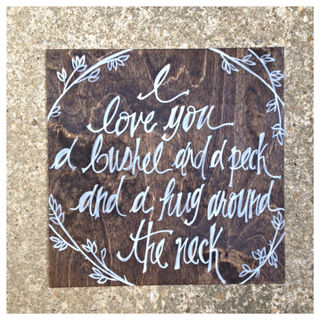 I
love you
a bushel and a peck
and a hug around
the neck